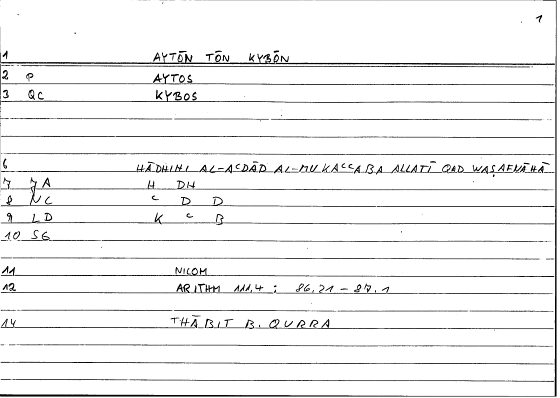 1
1 AYTŌN TŌN KYBŌN
2 P AYTOS
3 QC KYBOS
6 HĀDHIHI AL-AᶜDĀD AL-MUKAᶜᶜABA ALLATĪ QAD WAṢAFNĀHĀ
7 JA H DH
8 NC ᶜ D D
9 LD K ᶜ B
10 SG
11 NICOM
12 ARITHM 111,4 : 86,21 – 87,1
14 THĀBIT B. QURRA